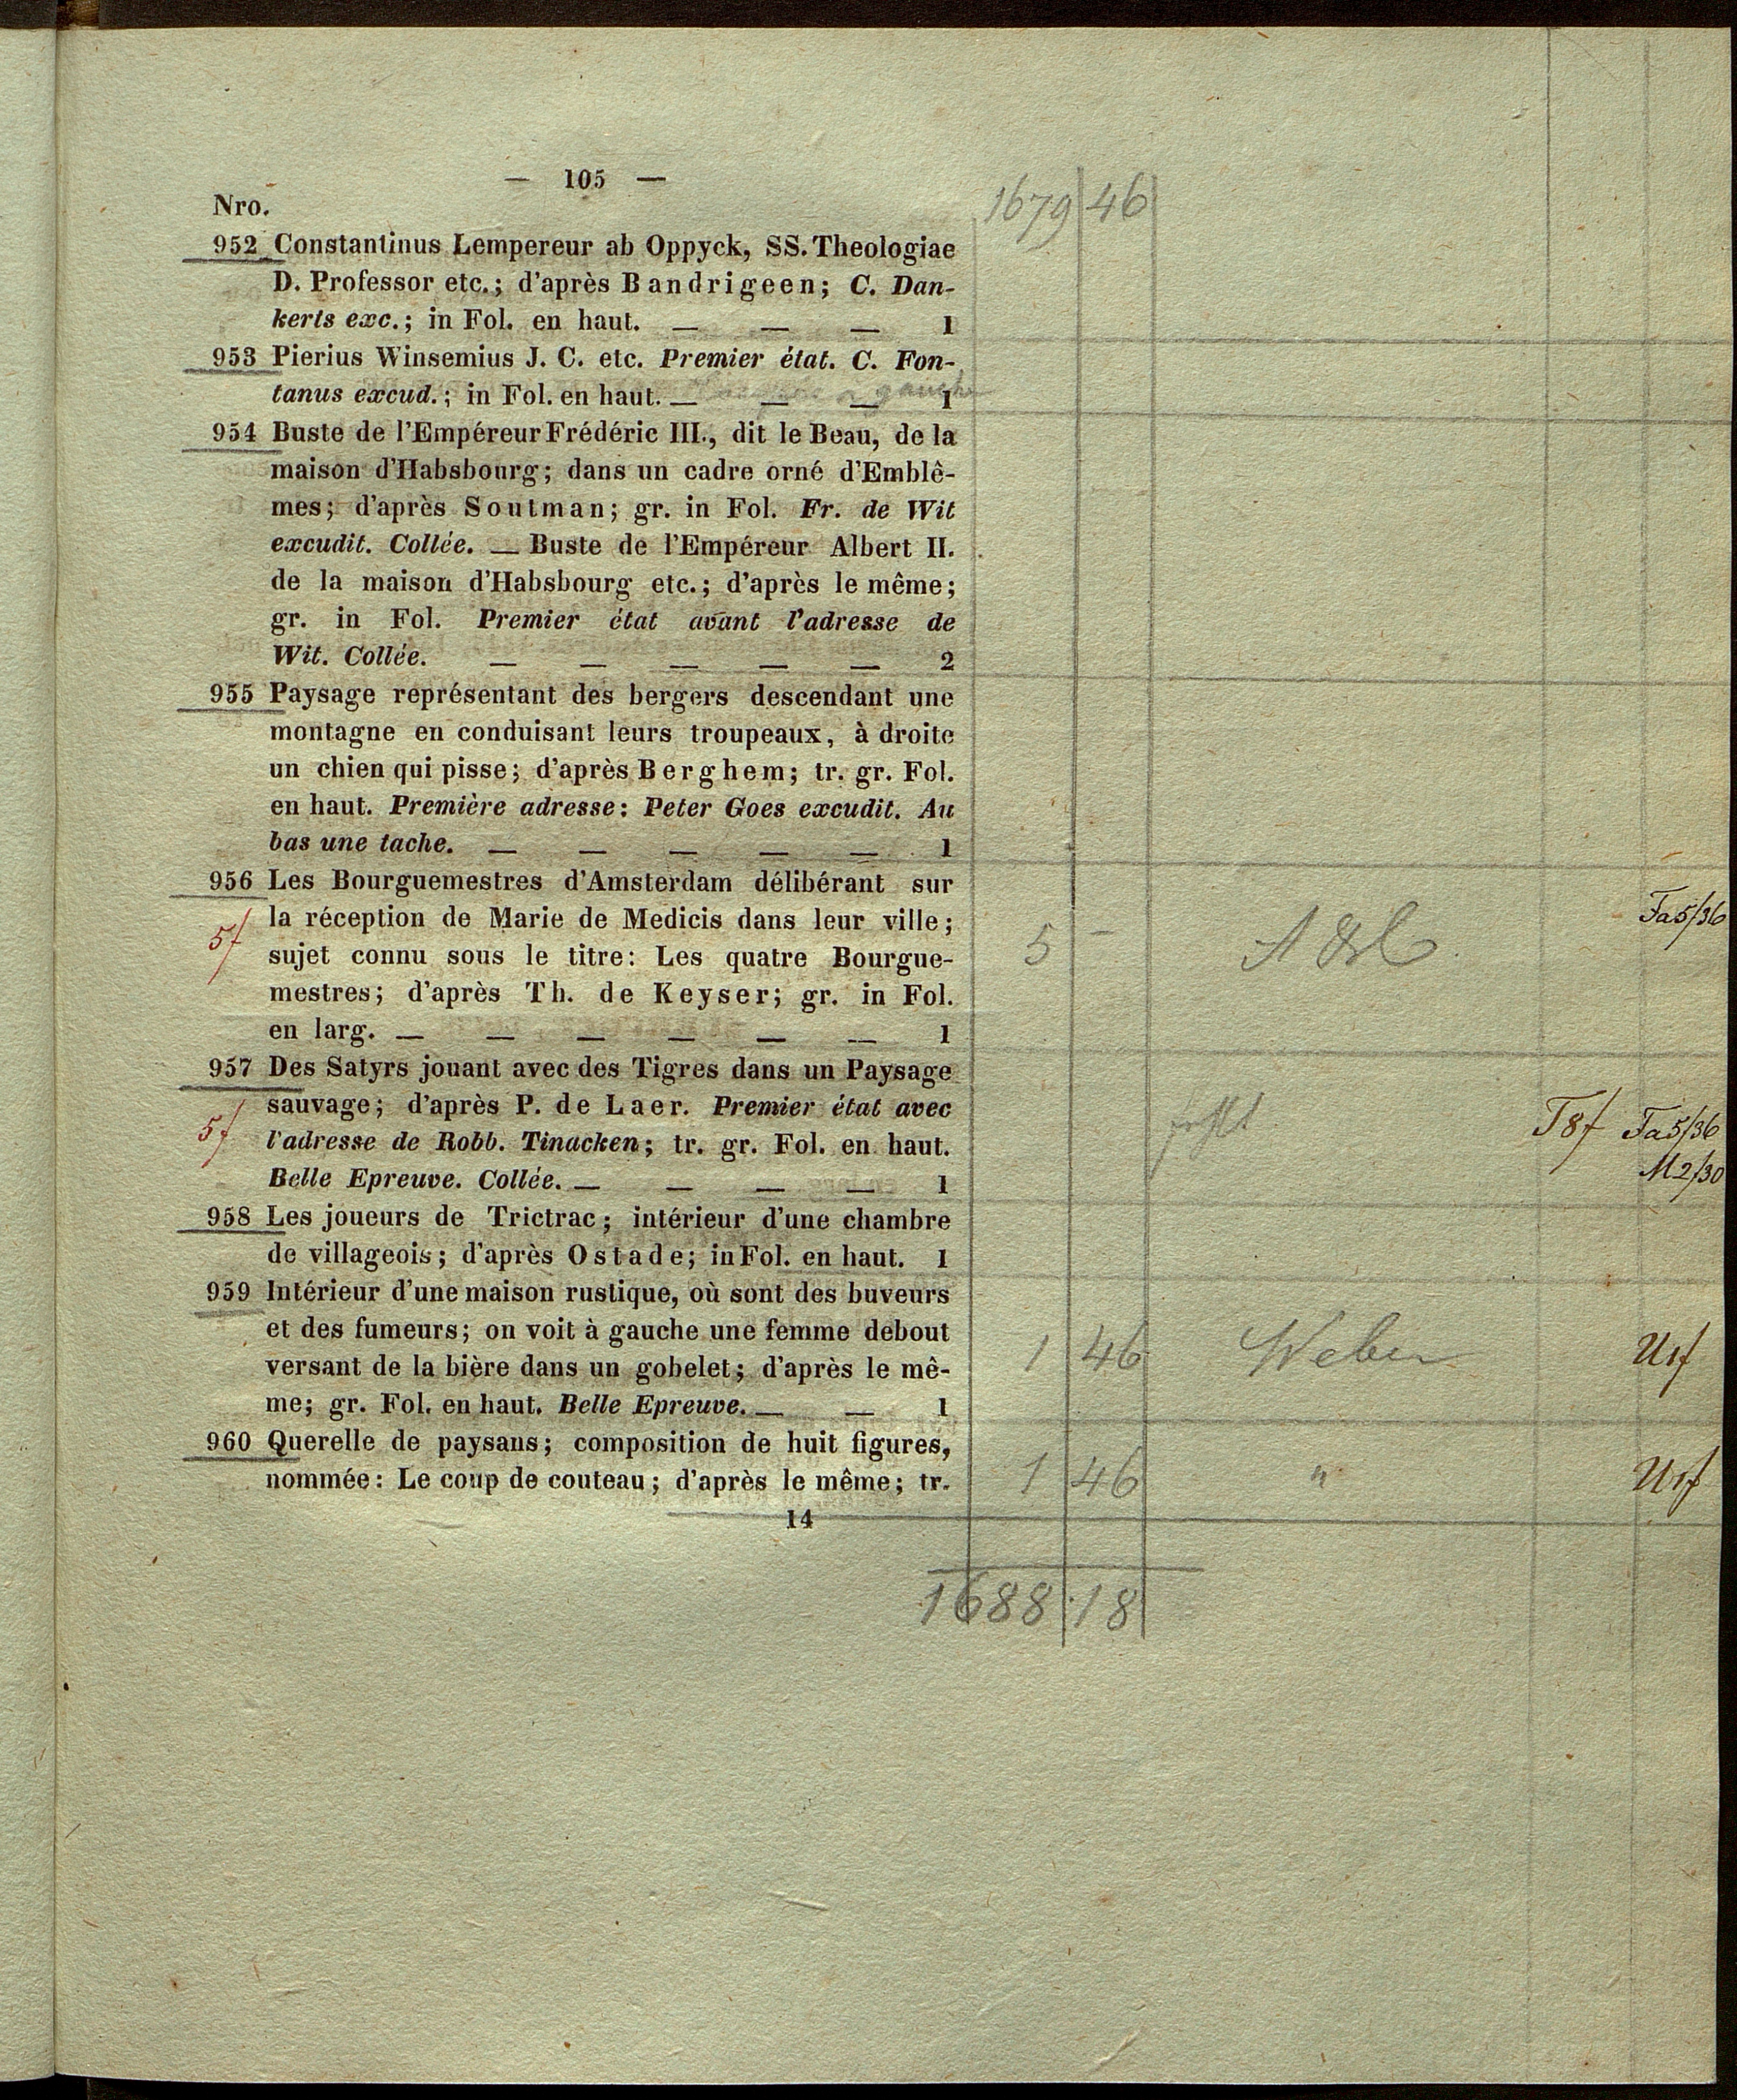 — 105 —
1679 46
Nro.
952 Constantinus Lempereur ab Oppyck, SS. Theologiae
D. Professor etc.; d'après Bandrigeen; C. Dan-
kerts exc.; in Fol. en haut. — — — 1
953 Pierius Winsemius J. C. etc. Premier état. C. Fon-
tanus excud.; in Fol. en haut. — — — 1
954 Buste de l'Empéreur Frédéric III., dit le Beau, de la
maison d'Habsbourg; dans un cadre orné d'Emblê-
mes; d'après Soutman; gr. in Fol. Fr. de Wit
excudit. Collée. — Buste de l'Empéreur Albert II.
de la maison d'Habsbourg etc.; d'après le même;
gr. in Fol. Premier état avant l'adresse de
Wit. Collée. — — — — — 2
955 Paysage représentant des bergers descendant une
montagne en conduisant leurs troupeaux, à droite
un chien qui pisse; d'après Berghem; tr. gr. Fol.
en haut. Première adresse: Peter Goes excudit. Au
bas une tache. — — — — — 1
956 Les Bourguemestres d'Amsterdam délibérant sur
la réception de Marie de Medicis dans leur ville;
sujet connu sous le titre: Les quatre Bourgue-
mestres; d'après Th. de Keyser; gr. in Fol.
en larg. — — — — — — 1
5f
5 —
Fa5/36
957 Des Satyrs jouant avec des Tigres dans un Paysage
sauvage; d'après P. de Laer. Premier état avec
l'adresse de Robb. Tinacken; tr. gr. Fol. en haut.
Belle Epreuve. Collée. — — — — 1
5f
T8f Fa5/36
M2/30
958 Les joueurs de Trictrac; intérieur d'une chambre
de villageois; d'après Ostade; in Fol. en haut. 1
959 Intérieur d'une maison rustique, où sont des buveurs
et des fumeurs; on voit à gauche une femme debout
versant de la bière dans un gobelet; d'après le mê-
me; gr. Fol. en haut. Belle Epreuve. — — 1
1 46 Weber U1f
960 Querelle de paysans; composition de huit figures,
nommée: Le coup de couteau; d'après le même; tr.
1 46 " U1f
14
1688 18